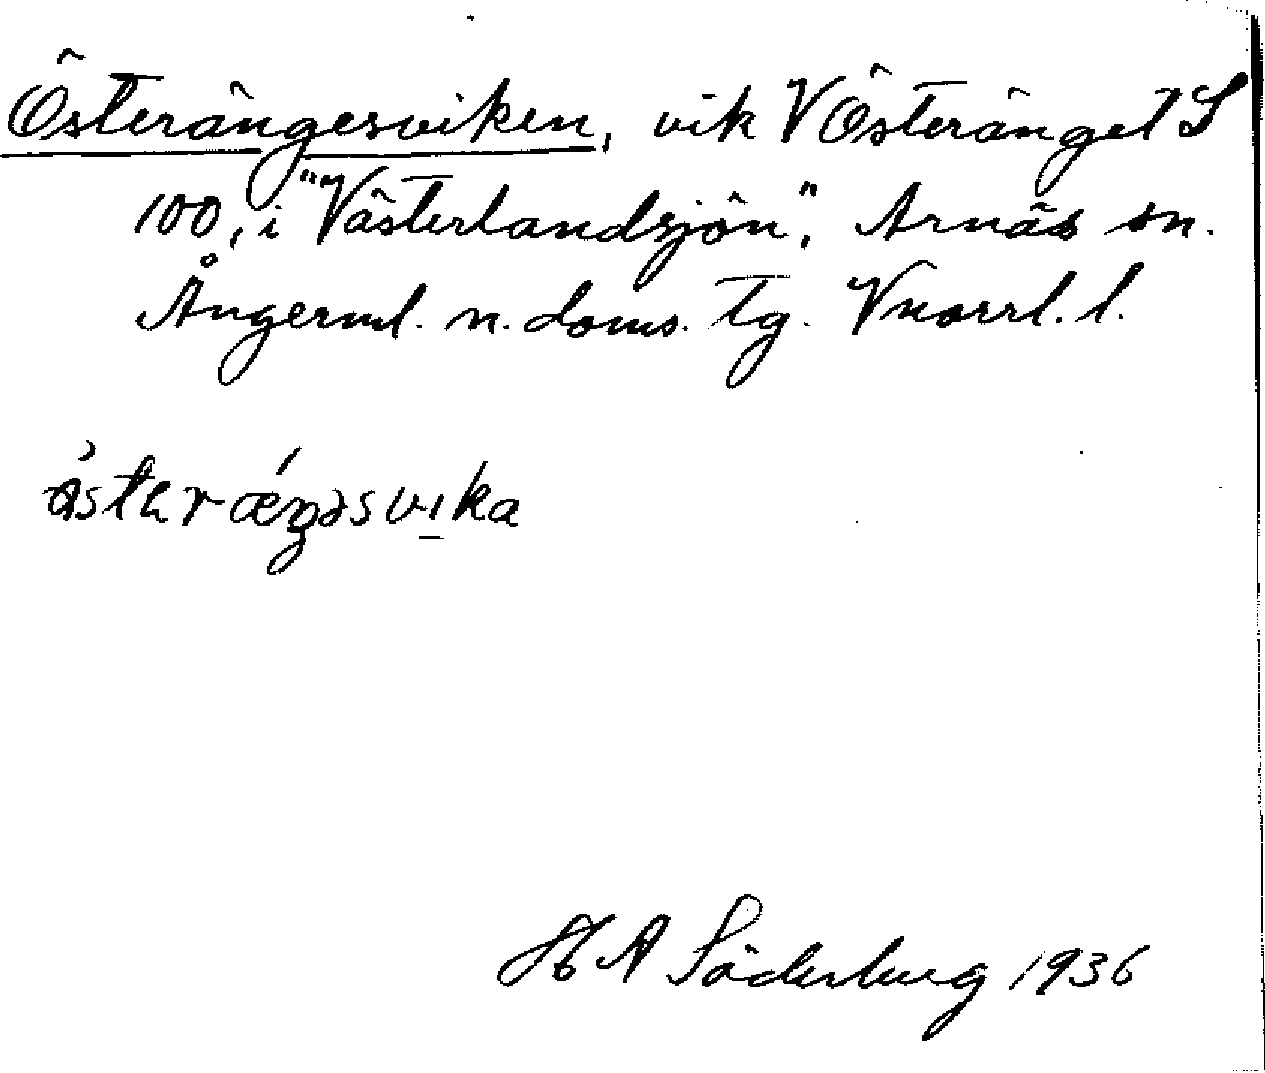 Österängesviken, vik V Österänget S
100, i "Västerlandsjön", Arnäs sn.
Ångerml. n. doms. tg. Vnorrl. l.
H A Söderberg 1936